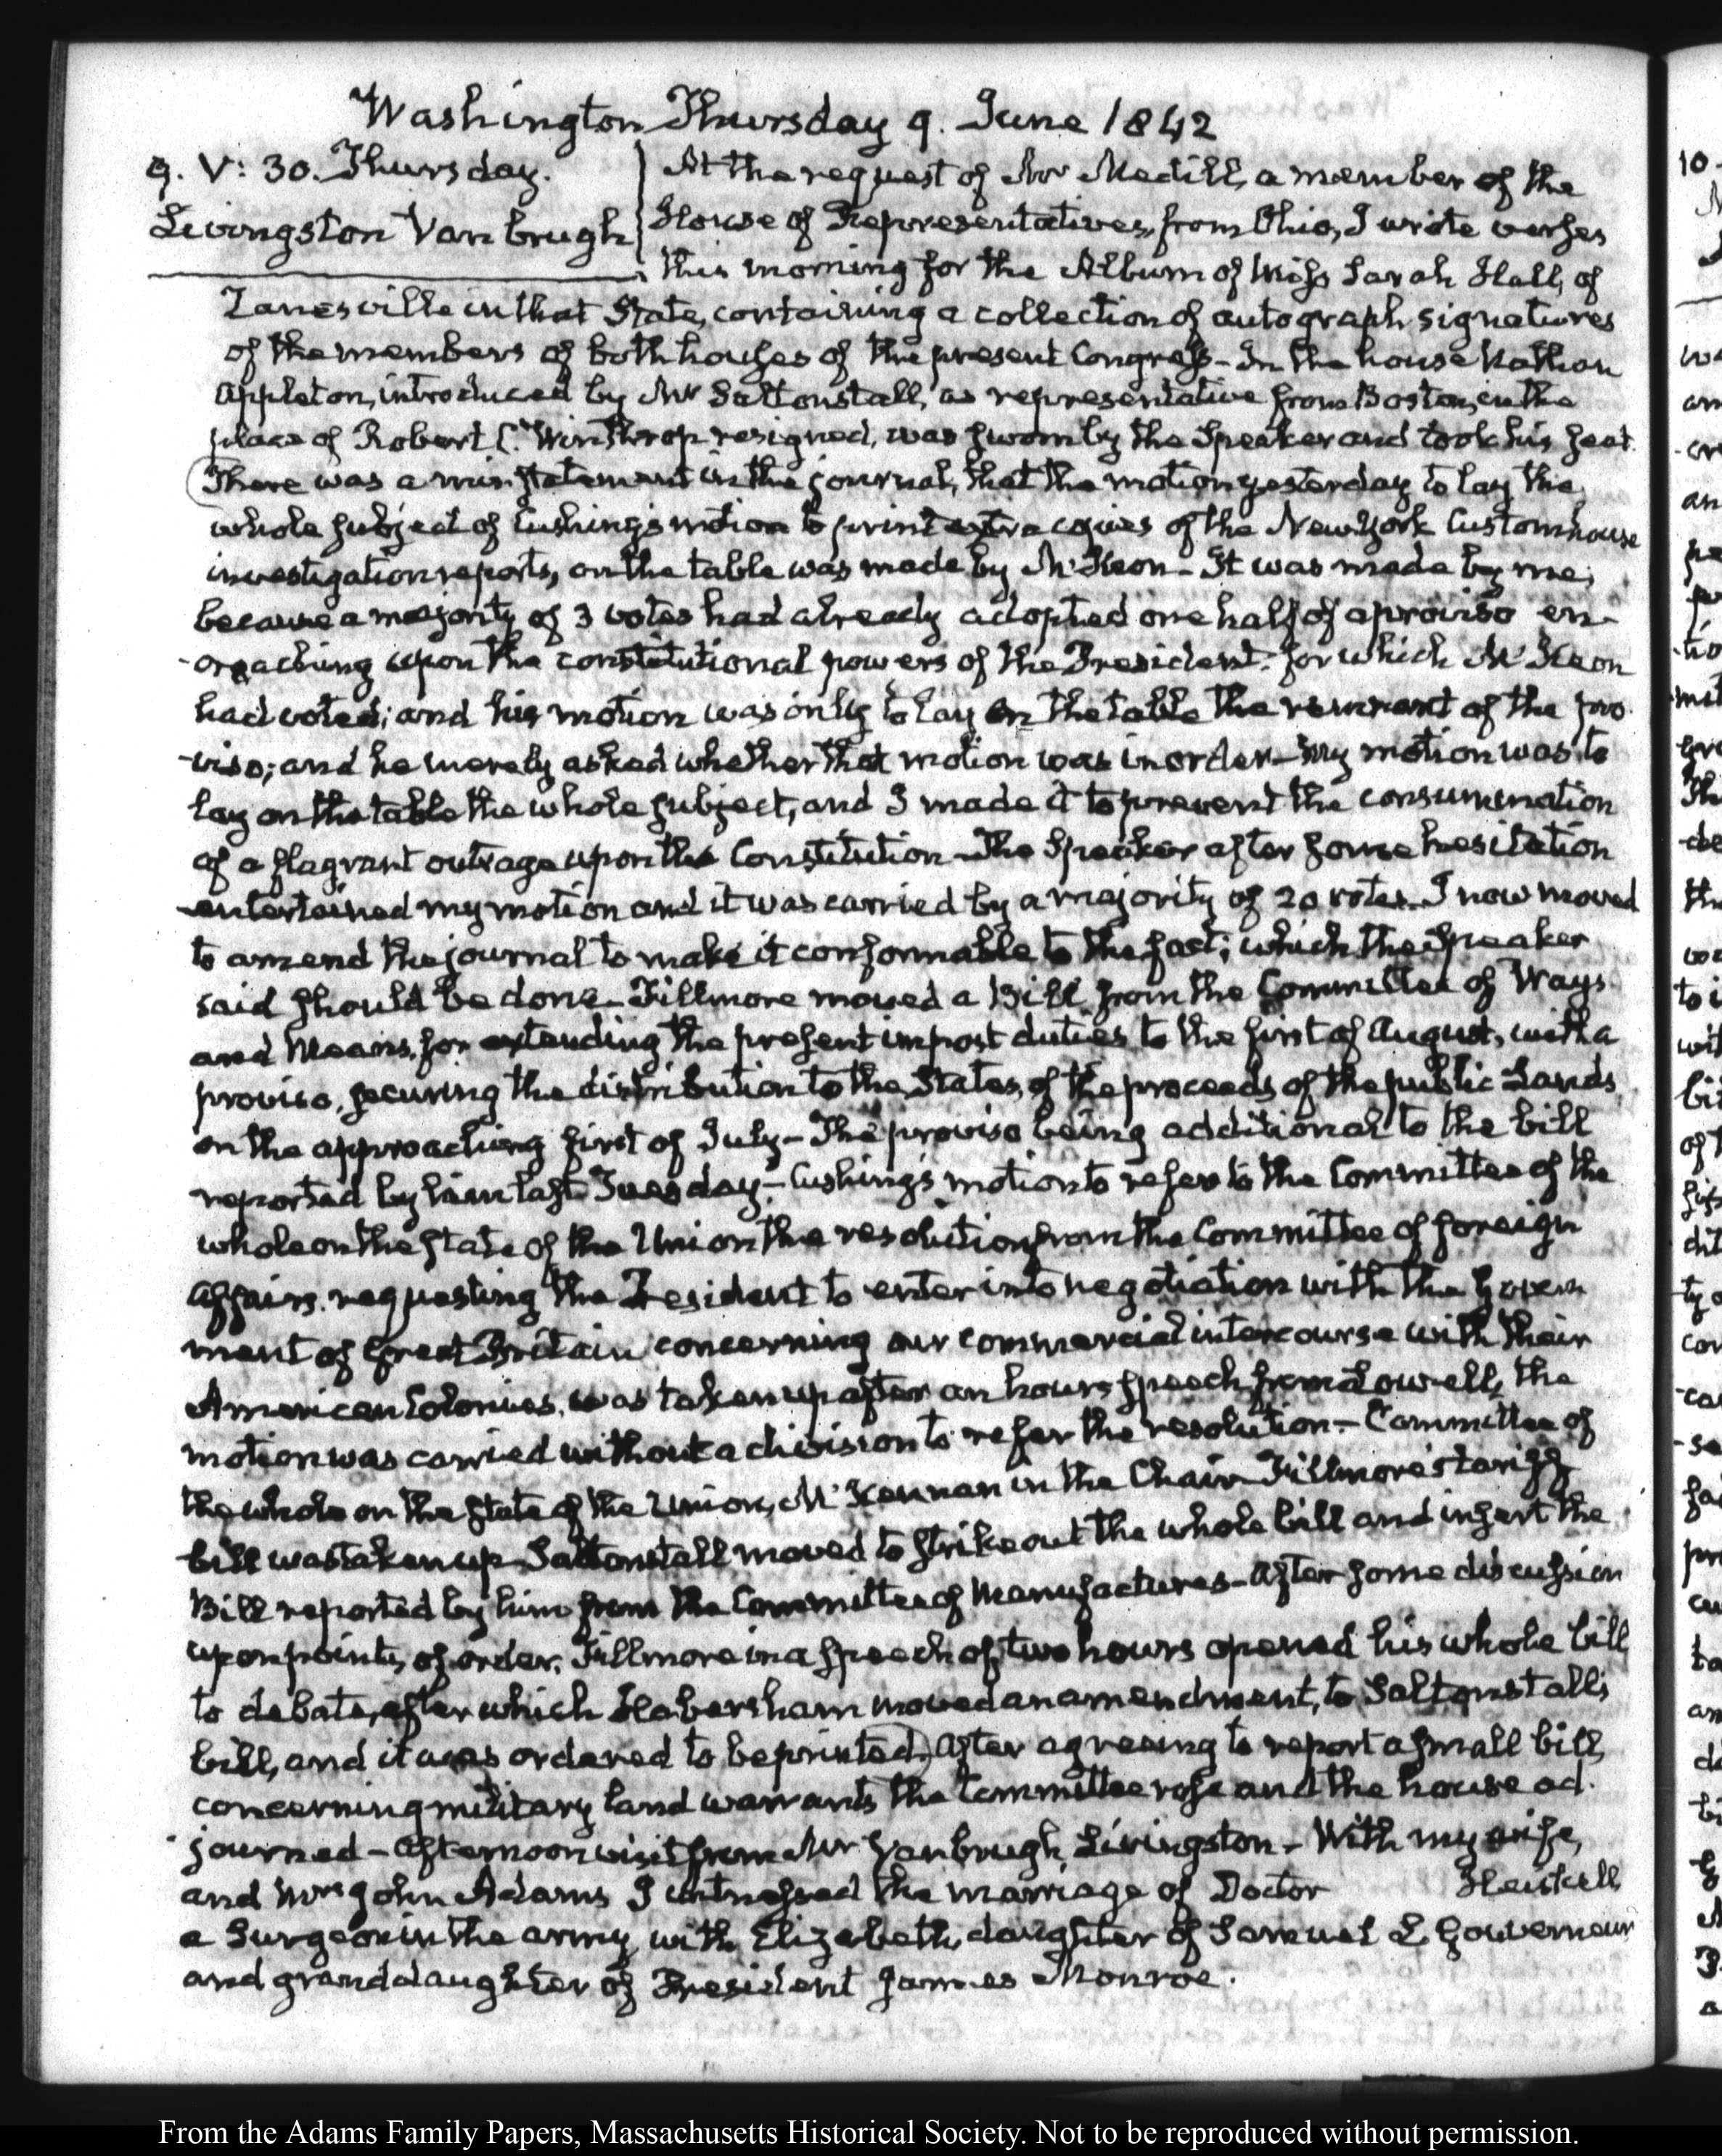 Washington Thursday 9. June 1842
9. V: 30. Thursday.
Livingston Van brugh
At the request of Mr Medill, a member of the
House of Representatives, from Ohio, I wrote verses
this morning for the Album of Miss Sarah Hall, of
Zanesville in that State, containing a collection of autograph signatures
of the members of both houses of the present Congress - In the house Nathan
Appleton, introduced by Mr Saltonstall, as representative from Boston, in the
place of Robert C. Winthrop resigned, was sworn by the Speaker and took his seat.
There was a misstatement in the journal, that the motion yesterday to lay the
whole subject of Cushing's motion to print extra copies of the New York Customhouse
investigation reports, on the table was made by McKeon - It was made by me;
because a majority of 3 votes had already adopted one half of a proviso en-
-croaching upon the constitutional powers of the President. for which McKeon
had voted; and his motion was only to lay on the table the remnant of the pro-
-viso; and he merely asked whether that motion was in order - My motion was to
lay on the table the whole subject, and I made it to prevent the consummation
of a flagrant outrage upon the Constitution - The Speaker after some hesitation
entertained my motion and it was carried by a majority of 20 votes. I now moved
to amend the journal to make it conformable to the fact; which the Speaker
said should be done - Fillmore moved a Bill from the Committee of Ways
and Means, for extending the present impost duties to the first of August, with a
proviso, securing the distribution to the States, of the proceeds of the public Lands
on the approaching first of July - The proviso being additional to the bill
reported by him last Tuesday - Cushing's motion to refer to the Committee of the
whole on the state of the Union the resolution from the Committee of foreign
affairs, requesting the President to enter into negotiation with the Govern
ment of Great Britain concerning our commercial intercourse with their
American Colonies, was taken up after an hours speech from Lowell, the
motion was carried without a division to refer the resolution. - Committee of
the whole on the state of the Union, McKennan in the Chair Fillmore's tariff
bill was taken up Saltonstall moved to strike out the whole bill and insert the
Bill reported by him from the Committee of Manufactures - After some discussion
upon points of order, Fillmore in a speech of two hours opened his whole bill
to debate, after which Habersham moved an amendment, to Saltonstall's
bill, and it was ordered to be printed.) After agreeing to report a small bill,
concerning military land warrants the Committee rose and the house ad-
journed - Afternoon visit from Mr Vanbrugh Livingston - With my wife,
and Mrs John Adams I witnessed the marriage of Doctor Heiskell
a Surgeon in the army, with Elizabeth, daughter of Samuel L Gouverneur
and granddaughter of President James Monroe.
From the Adams Family Papers, Massachusetts Historical Society. Not to be reproduced without permission.